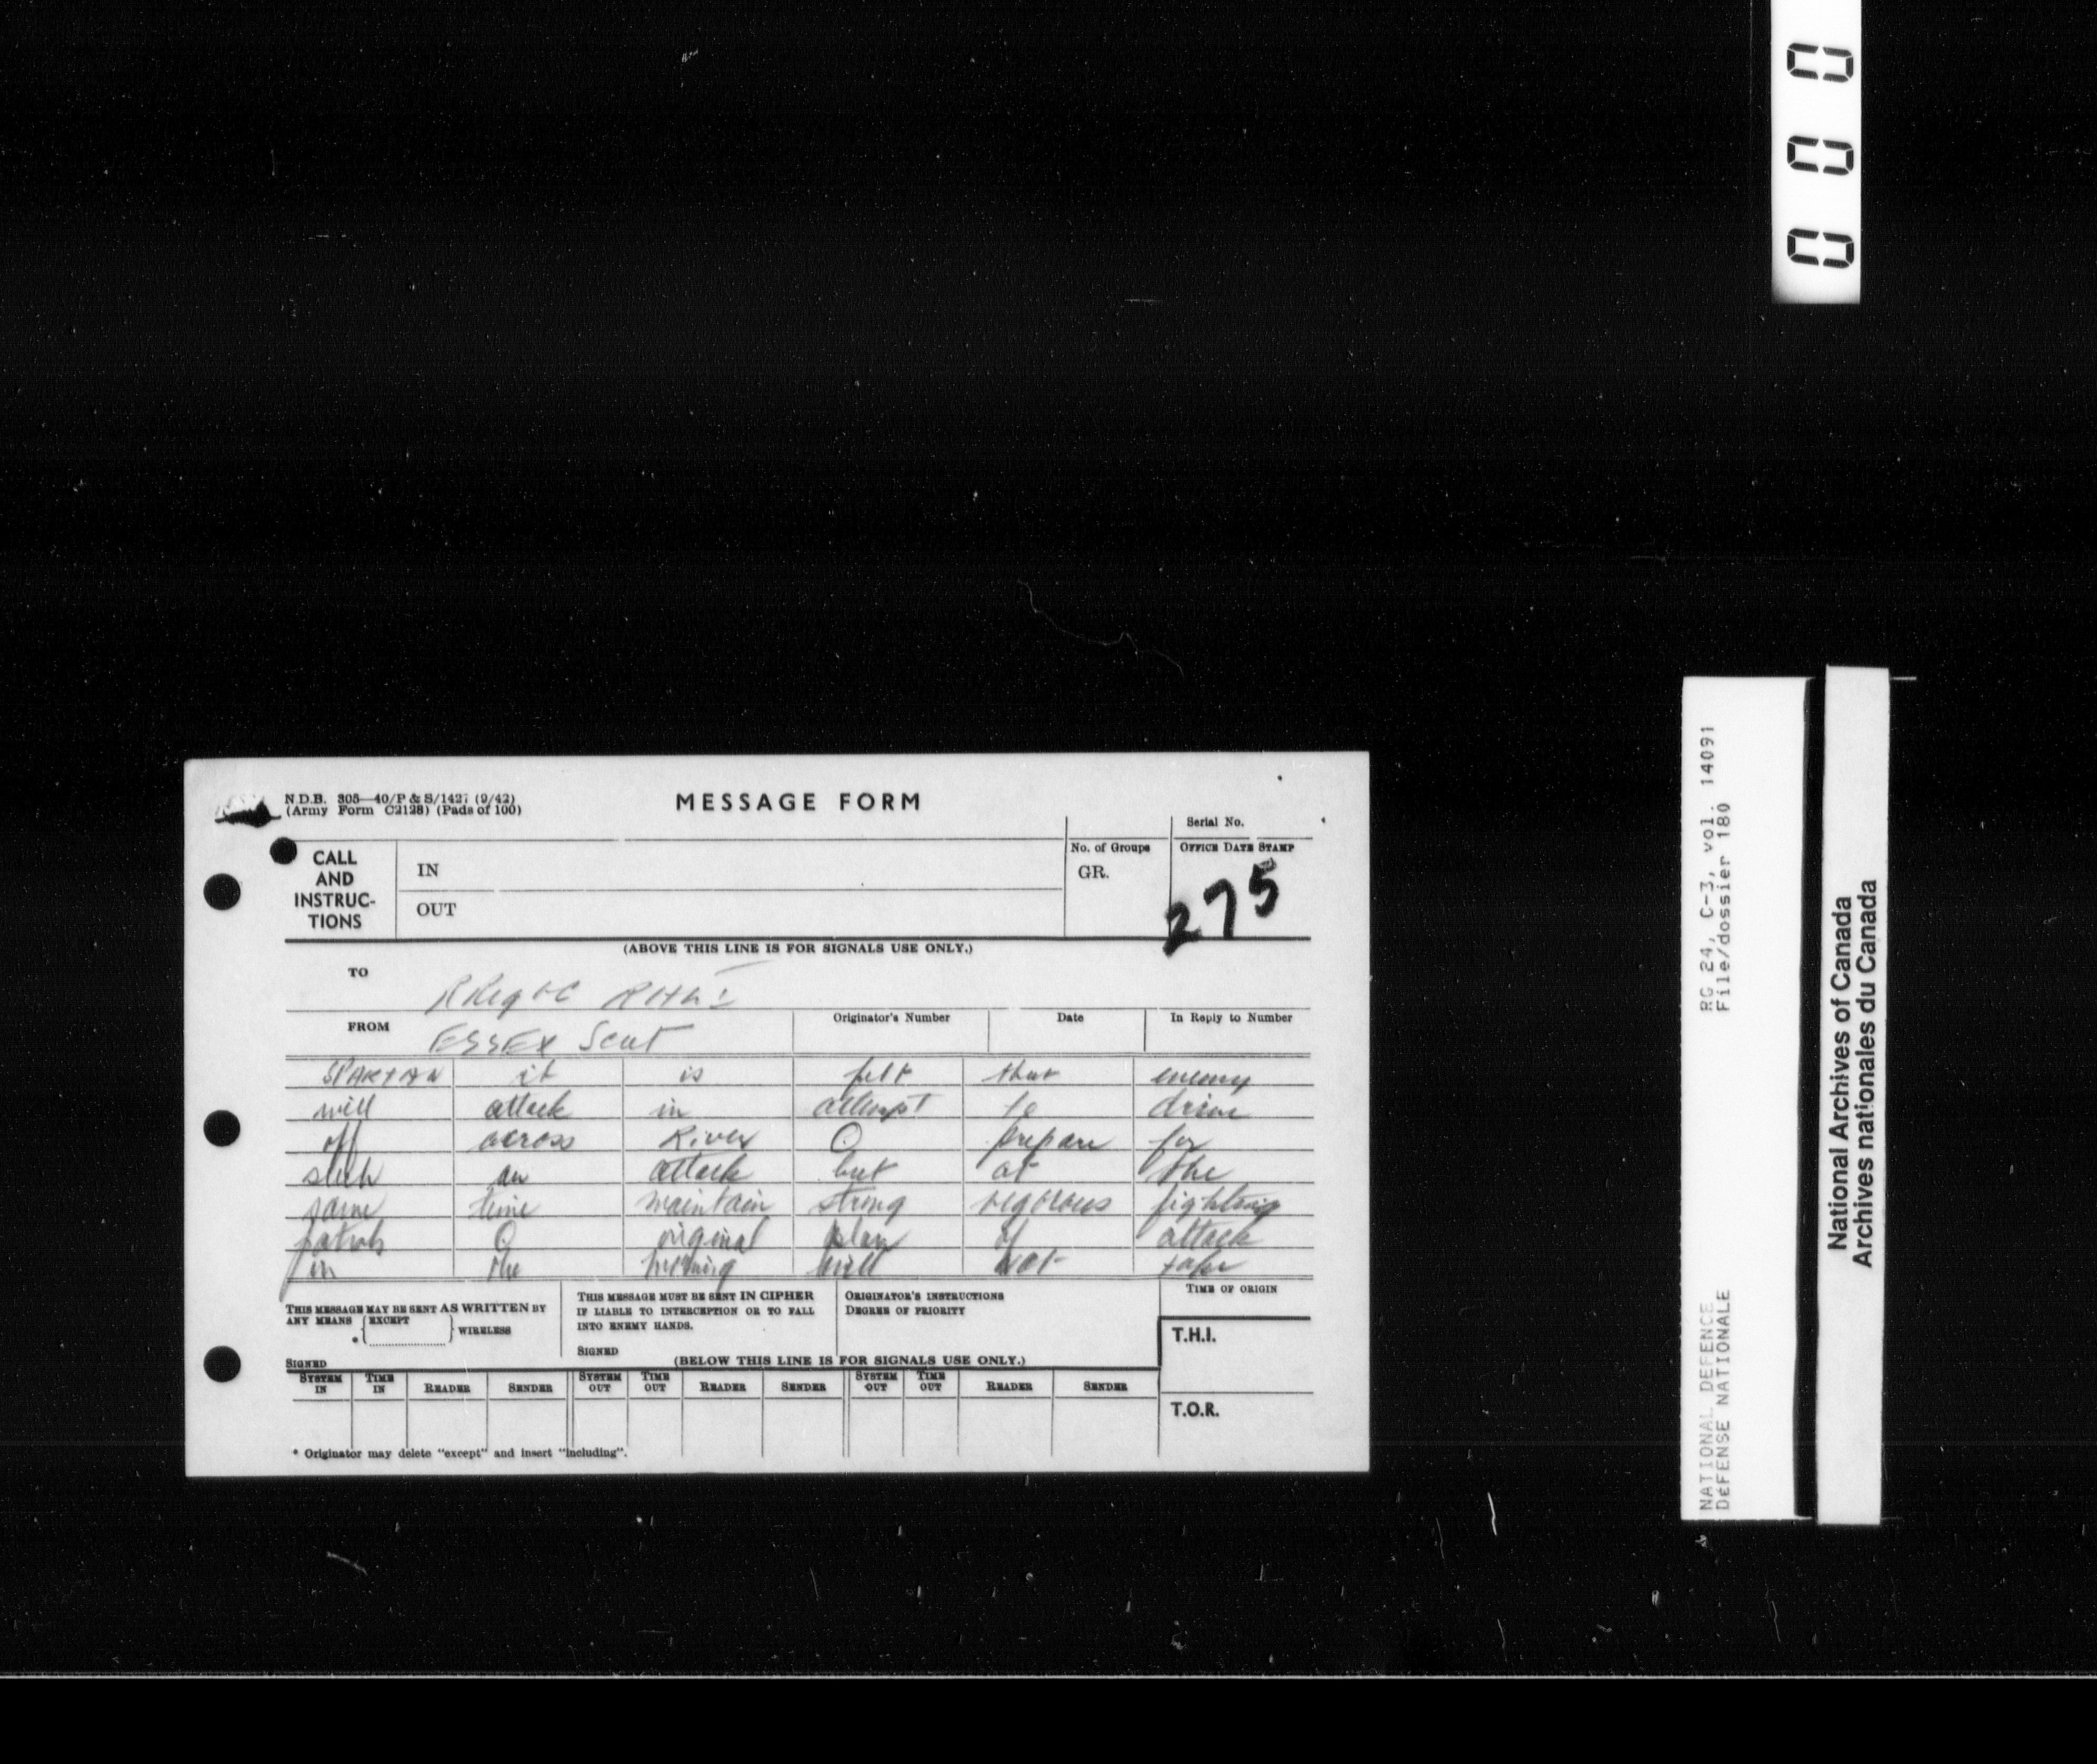 000
N.D.B. 305—40/P & S/1427 (9/42)
(Army Form C2128) (Pads of 100)
MESSAGE FORM
Serial No.
CALL
AND
INSTRUC-
TIONS
IN
OUT
No. of Groups
GR.
OFFICE DATE STAMP
275
(ABOVE THIS LINE IS FOR SIGNALS USE ONLY.)
TO
FROM
ESSEX Scot
Originator's Number
Date
In Reply to Number
SPARTAN it is felt that enemy
will attack in attempt to drive
off across River O prepare for
such an attack but at the
same time maintain strong vigorous fighting
patrols O original plan of attack
in the will not take
THIS MESSAGE MAY BE SENT AS WRITTEN BY
ANY MEANS EXCEPT
* WIRELESS
SIGNED
THIS MESSAGE MUST BE SENT IN CIPHER
IF LIABLE TO INTERCEPTION OR TO FALL
INTO ENEMY HANDS.
SIGNED
ORIGINATOR'S INSTRUCTIONS
DEGREE OF PRIORITY
TIME OF ORIGIN
T.H.I.
T.O.R.
(BELOW THIS LINE IS FOR SIGNALS USE ONLY.)
SYSTEM IN TIME IN READER SENDER SYSTEM OUT TIME OUT READER SENDER SYSTEM OUT TIME OUT READER SENDER
* Originator may delete "except" and insert "including".
RG 24, C-3, vol. 14091
File/dossier 180
NATIONAL DEFENCE
DÉFENSE NATIONALE
National Archives of Canada
Archives nationales du Canada